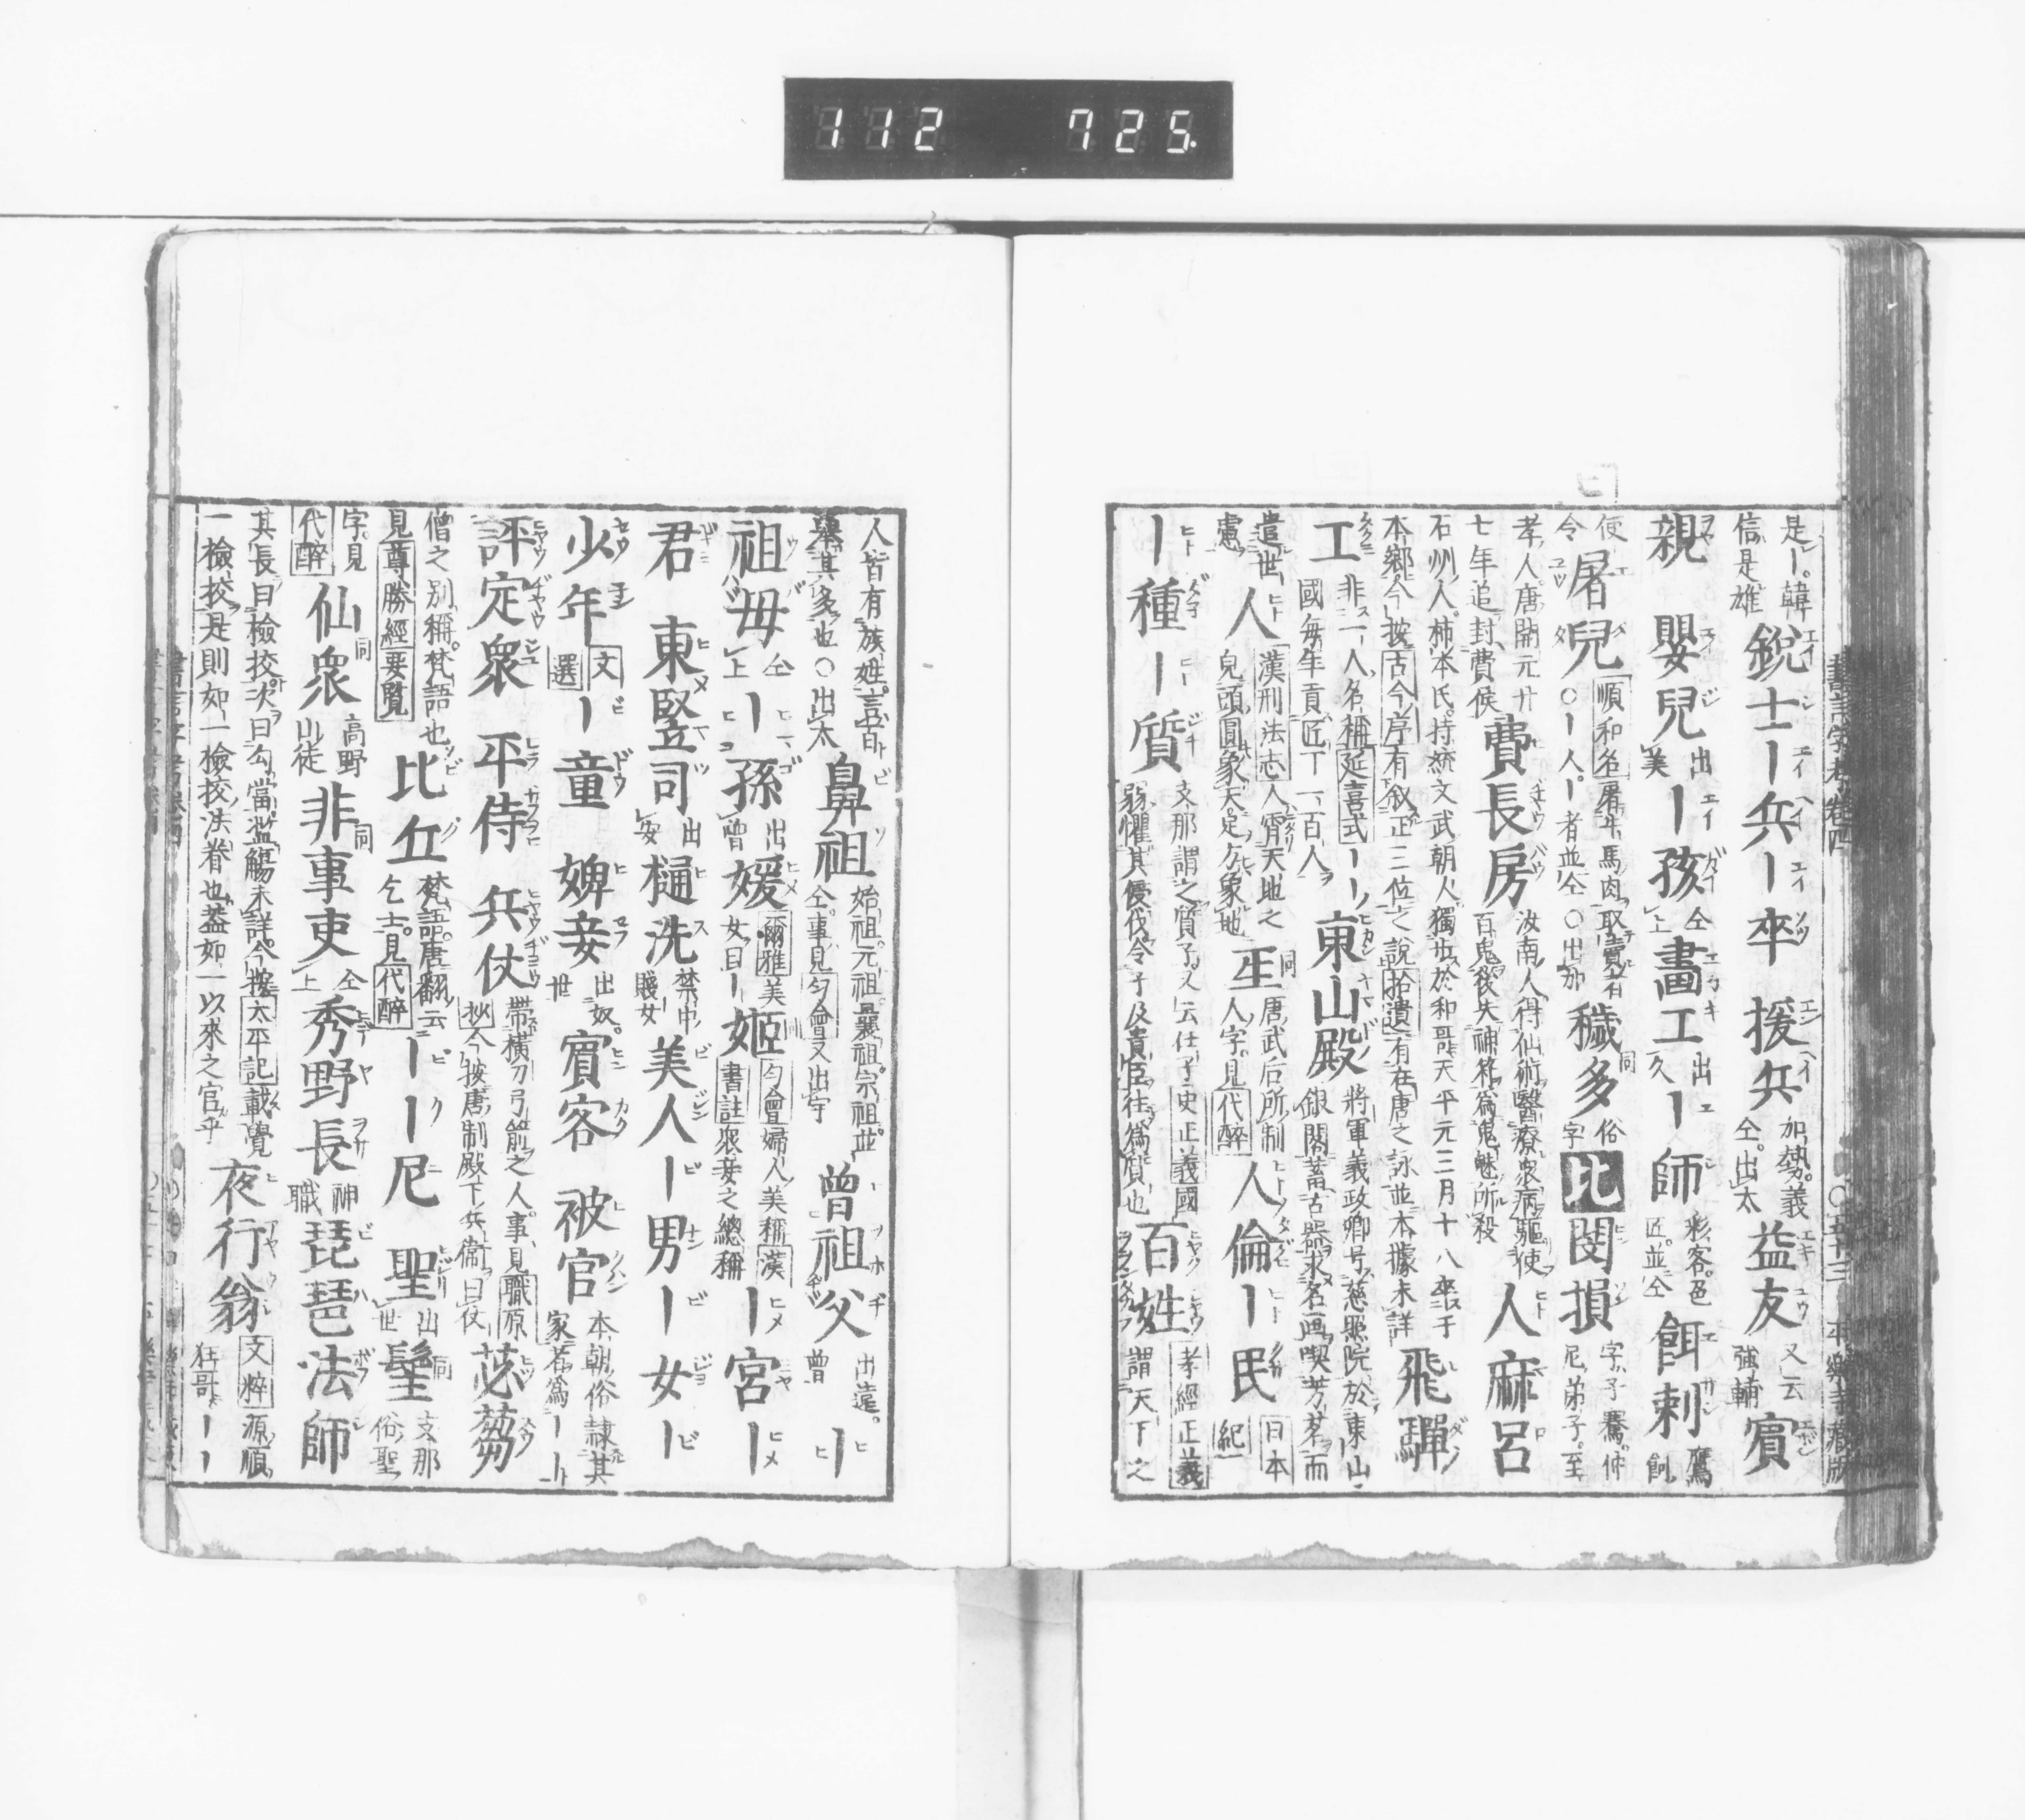 112 725
是ー。韓
信是雄
鋭士ー兵ー卒 援兵
加勢。義
仝。出太
益友
又云
強輔
賓
親 嬰兒
出
美
ー孩
仝
上
畫工
出
久
ー師
彩客。邑
匠。並仝
餌刺
鷹
飼
使
令
屠兒
順和名屠牛馬肉取賣者
○ー人。ー者並仝○出那
穢多
俗
字
比
閔損
字子騫。仲
尼弟子。至
孝人唐開元廿
七年追封費侯
費長房
汝南人得仙術醫療衆病驅使
百鬼後失神符爲鬼魅所殺
人麻呂
石州人。柿本氏。持統文武朝人獨歩於和哥天平元三月十八卒于
本郷今按古今序有叙正三位之說拾遺有在唐之詠並本據未詳
飛驒
工
非一人名稱延喜式ーー
國毎年貢匠丁一百人
東山殿
將軍義政卿号慈照院於東山
銀閣蓄古器求名画喫芳茗而
遣世
慮
人
漢刑法志人霄天地之
皃頭圓象天足方象地
𤯔
唐武后所制
人字見代醉
人倫ー民
日本
紀
ー種ー質
支那謂之質子。又云仕子。史正義國
弱懼其侵伐令子及貴臣往爲質也
百姓
孝經正義
謂天下之
人皆有族姓言百
擧其多也○出太
鼻祖
始祖。元祖。曩祖。宗祖。並
仝。事見匀會又出宇
曾祖父
出遠。
曾
ー
祖母
仝
上
ー孫
出
曾
媛
爾雅美
女曰ー
姬
匀會婦人美稱漢
書註衆妾之總稱
ー宮ー
君 東豎司
出
安
樋洗
禁中
賤女
美人ー男ー女ー
少年
文
選
ー童 婢妾
出奴。
世
賓客 被官
本朝俗隷其
家者爲ーー
評定衆 平侍 兵仗
帶横刀弓箭之人事見職原
抄今按唐制殿下兵衞曰仗
苾蒭
僧之別稱。梵語也
見尊勝經要覧
比丘
梵語。唐翻云
乞士。見代醉
ーー尼 聖
出
世
髽
支那
俗聖
字。見
代醉
仙衆
高野
山徒
非事吏
仝
上
秀野長
神
職
琵琶法師
其長曰檢挍。次曰勾當。濫觴未詳。今按太平記載覺
一檢挍。是則如一檢挍法眷也。蓋如一以來之官乎
夜行翁
文粹源順
狂哥ーー